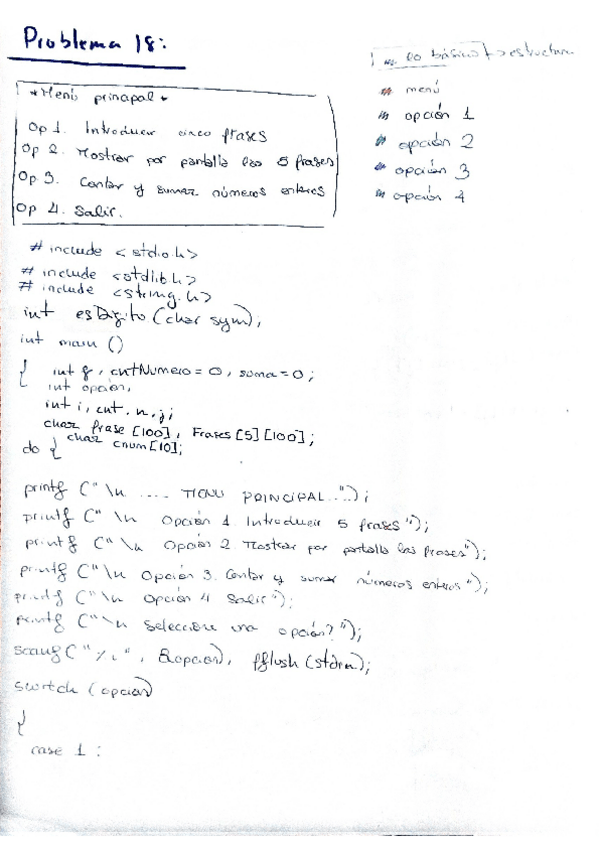 Problema 18:
lo básico > estructura
* Menú principal *
Op 1. Introducir cinco frases
Op 2. Mostrar por pantalla las 5 frases
Op 3. Contar y sumar números enteros
Op 4. Salir.
menú
opción 1
opción 2
opción 3
opción 4
# include <stdio.h>
# include <stdlib.h>
# include <string.h>
int esDigito (char sym);
int main ()
{ int f, cntNumero = 0, suma = 0;
int opción,
int i, cnt, n, j;
char frase [100], Frases [5] [100];
char cnum [10];
do {
printf (" \n .... MENU PRINCIPAL ..");
printf (" \n Opción 1. Introducir 5 frases ");
printf (" \n Opción 2. Mostrar por pantalla las frases");
printf (" \n Opción 3. Contar y sumar números enteros ");
printf (" \n Opción 4 Salir");
printf (" \n Seleccione una opción? ");
scanf (" %i" , &opcion), fflush (stdin);
switch (opcion)
{
case 1 :